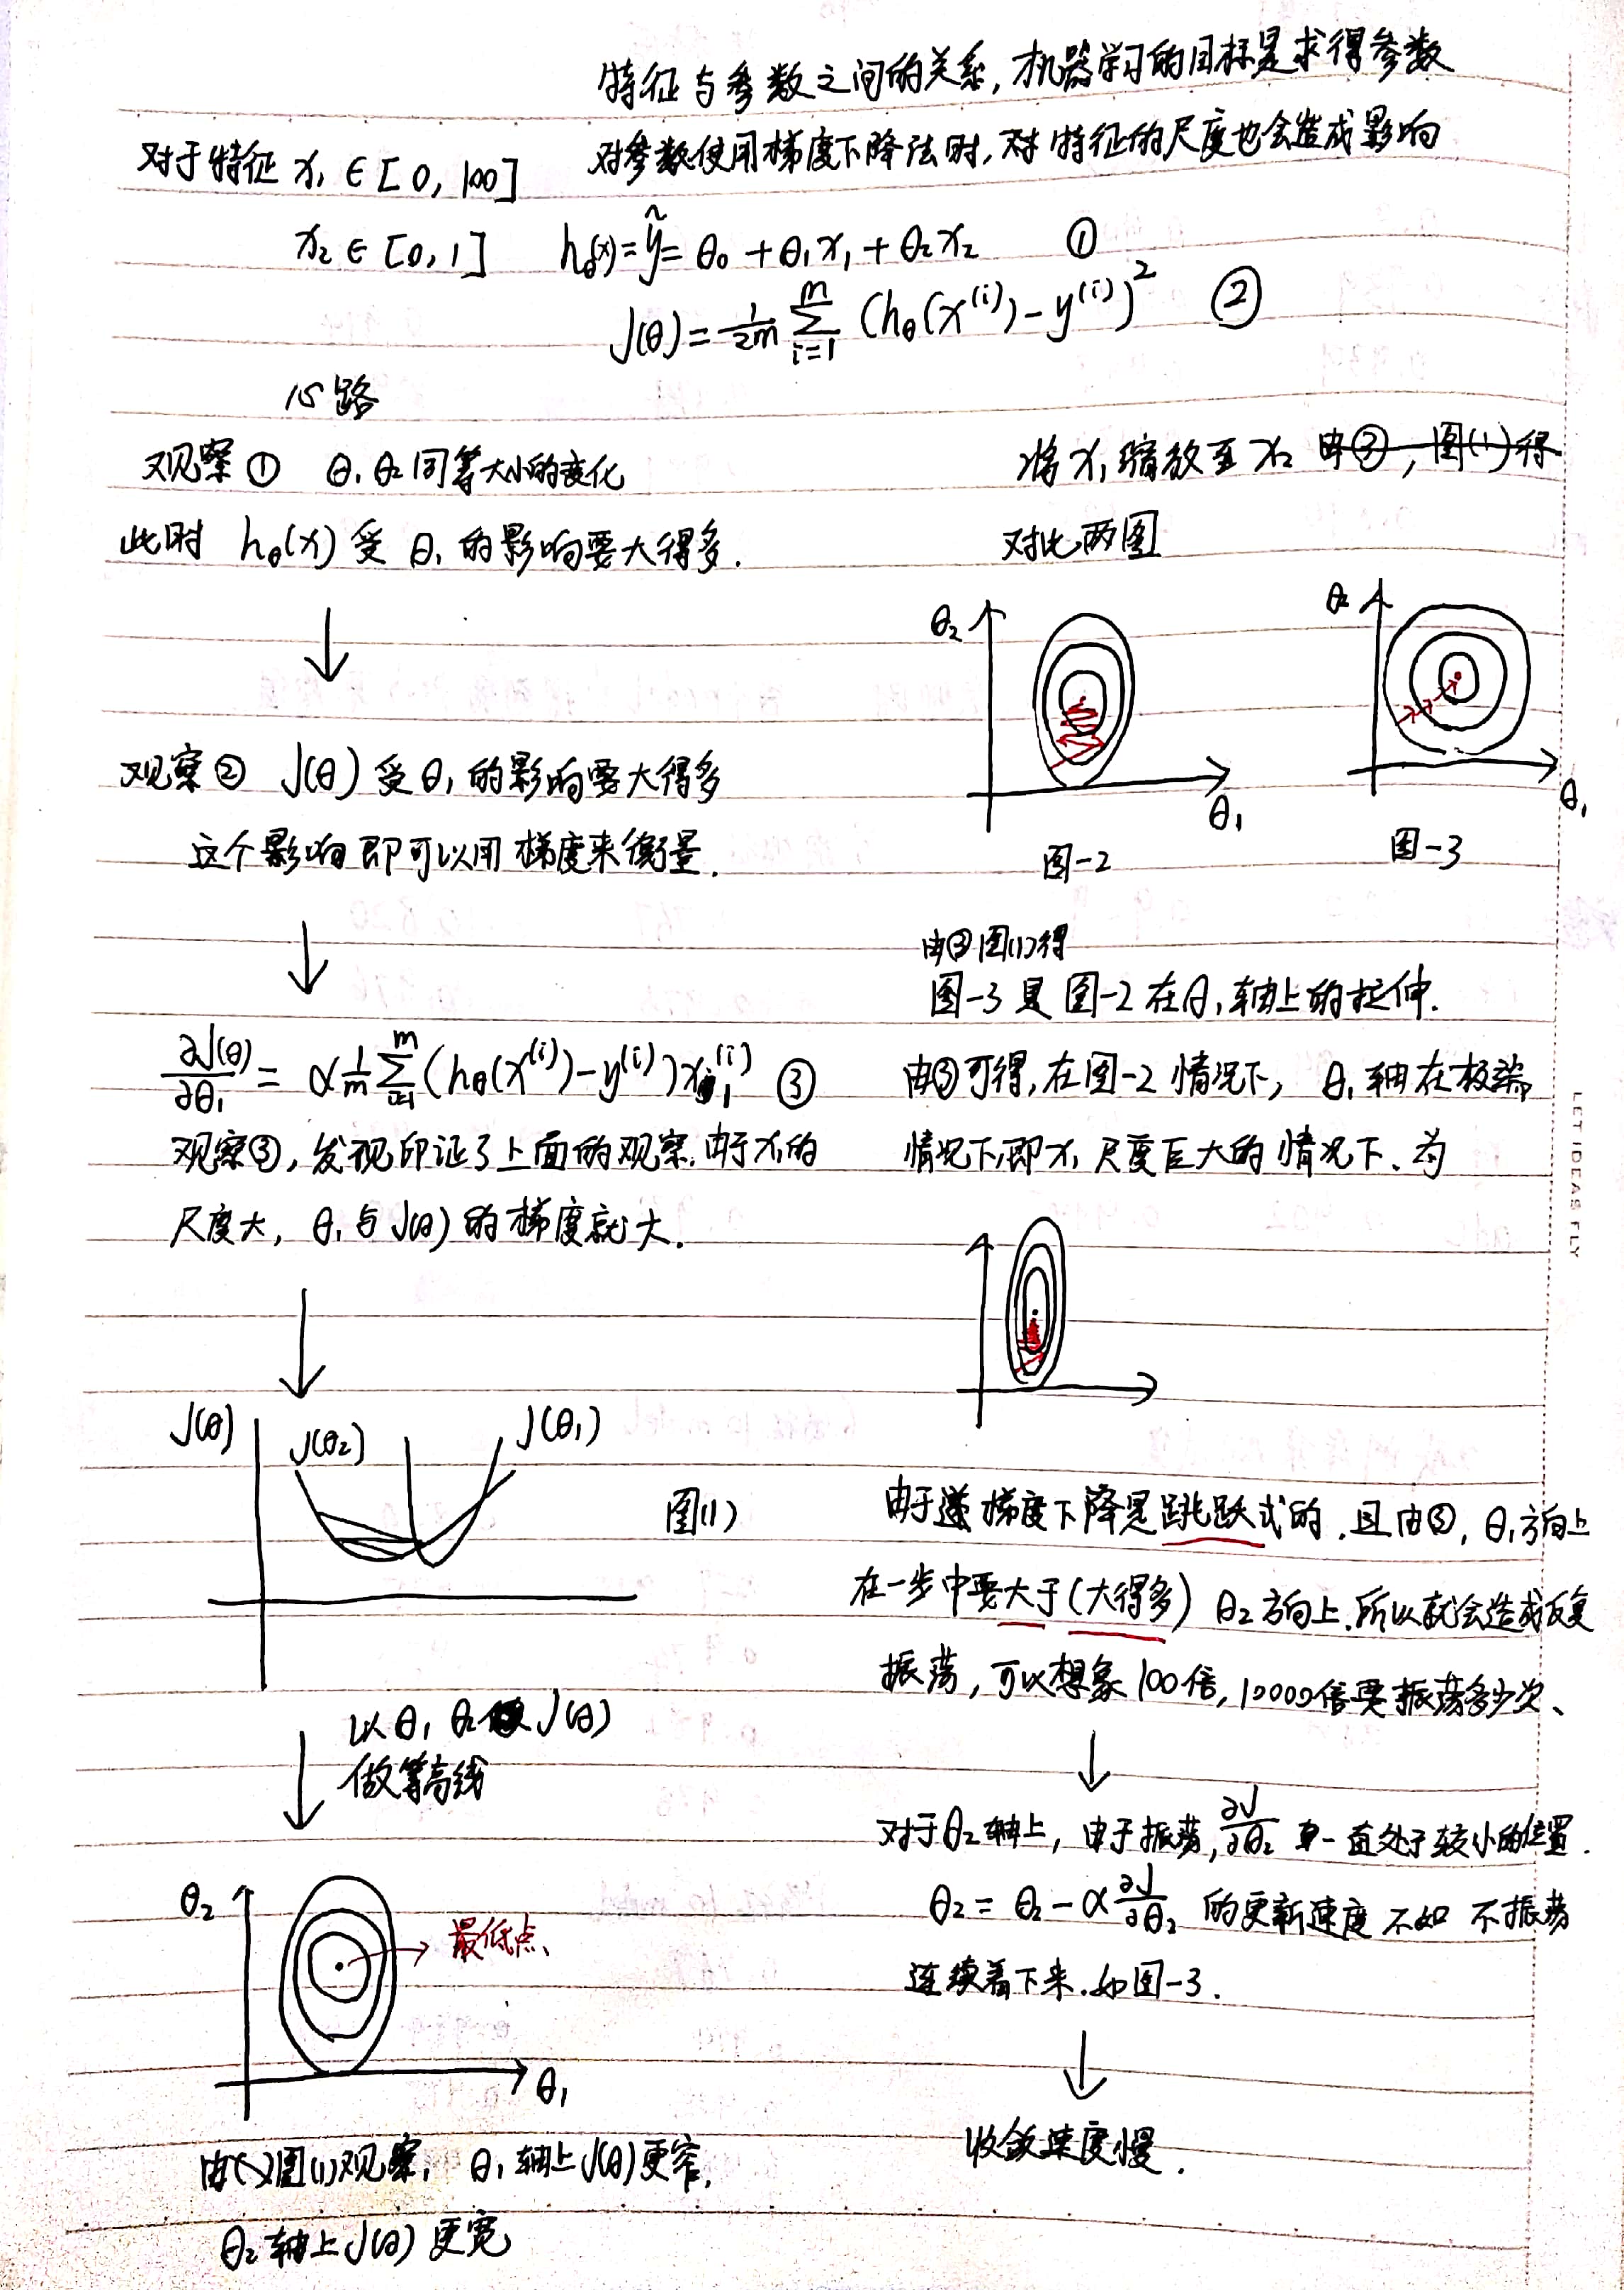 特征与参数之间的关系,机器学习的目标是求得参数
对于特征 x₁ ∈ [0, 100]
对参数使用梯度下降法时,对特征的尺度也会造成影响
x₂ ∈ [0, 1]
hθ(x) = ŷ = θ₀ + θ₁x₁ + θ₂x₂ ①
J(θ) = 1/2m Σ_{i=1}^{m} (hθ(x⁽ⁱ⁾) - y⁽ⁱ⁾)² ②
心路
观察① θ₁ θ₂ 同等大小的变化
此时 hθ(x) 受 θ₁ 的影响要大得多.
观察② J(θ) 受 θ₁ 的影响要大得多
这个影响即可以用梯度来衡量.
∂J(θ)/∂θ₁ = α 1/m Σ_{i=1}^{m} (hθ(x⁽ⁱ⁾) - y⁽ⁱ⁾) x₁⁽ⁱ⁾ ③
观察③, 发现印证了上面的观察, 由于x₁的
尺度大, θ₁与J(θ)的梯度就大.
J(θ) J(θ₂) J(θ₁)
图(1)
以 θ₁ θ₂ J(θ)
做等高线
θ₂
最低点、
θ₁
图(1)观察, θ₁轴上J(θ)更窄,
θ₂轴上J(θ)更宽
将 x₁ 缩放至 x₂ 由③, 图(1)得
对比两图
θ₂ θ₁ 图-2
θ₂ θ₁ 图-3
由③图(1)得
图-3是图-2在θ₁轴上的拉伸.
由③可得, 在图-2情况下, θ₁轴在极端
情况下,即x₁尺度巨大的情况下、为
由于梯度下降是跳跃式的, 且由③, θ₁方向上
在一步中要大于(大得多) θ₂方向上,所以就会造成反复
振荡, 可以想象100倍, 10000倍要振荡多少次、
对于θ₂轴上, 由于振荡, ∂J/∂θ₂ 一直处于较小的位置.
θ₂ = θ₂ - α ∂J/∂θ₂ 的更新速度不如 不振荡
连续着下来.如图-3.
收敛速度慢.
LET IDEAS FLY